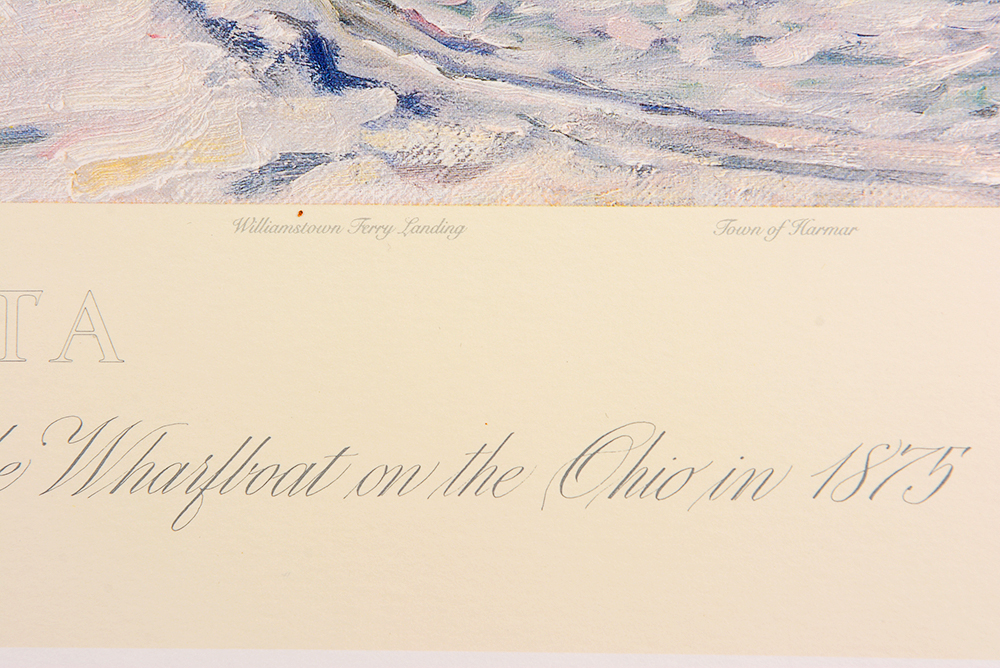 Williamstown Ferry Landing Town of Harmar
TA
Wharfboat on the Ohio in 1875